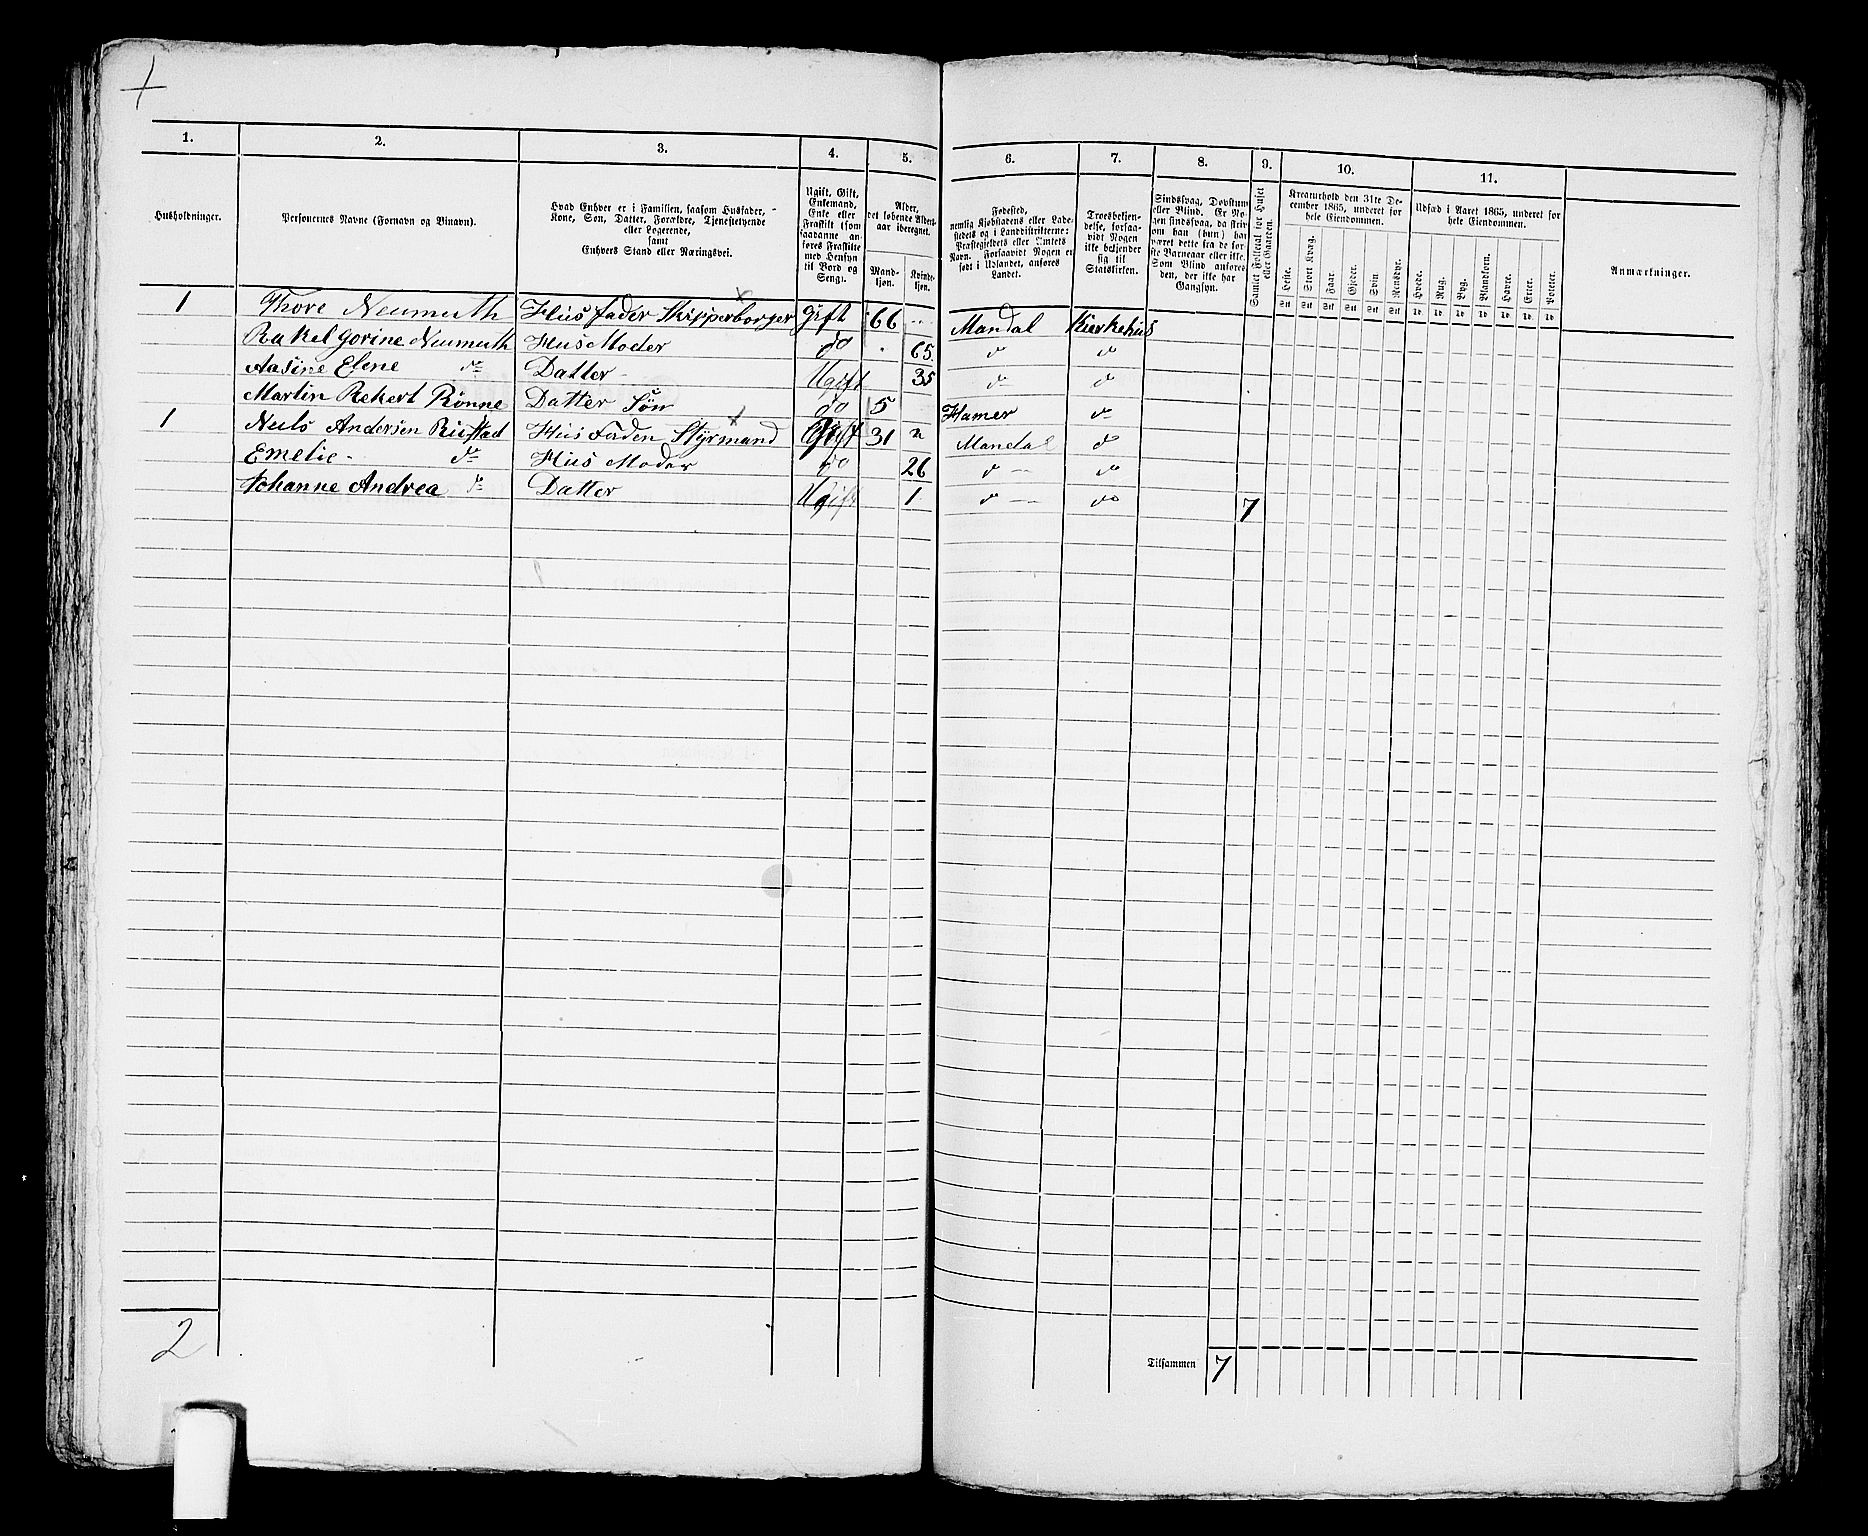 1. 2. 3. 4. 5. 6. 7. 8. 9. 10. 11.
Husholdninger.
Personernes Navne (Fornavn og Binavn).
Hvad Enhver er i Familien, saasom Husfader,
Kone, Søn, Datter, Forældre, Tjenestetyende
eller Logerende,
samt
Enhvers Stand eller Næringsvei.
Ugift, Gift,
Enkemand,
Enke eller
Fraskilt (som
saadanne an-
føres Fraskilte
med Hensyn
til Bord og
Seng).
Alder,
det løbende Alders-
aar iberegnet.
Mand-
kjøn.
Kvinde-
kjøn.
Fødested,
nemlig Kjøbstadens eller Lade-
stedets og i Landdistrikterne:
Præstegjeldets eller Amtets
Navn. Forsaavidt Nogen er
født i Udlandet, anføres
Landet.
Troesbekjen-
delse, forsaa-
vidt Nogen
ikke bekjender
sig til
Statskirken.
Sindssvag, Døvstum
eller Blind. Er No-
gen sindssvag, da skrives
om han (hun) har
været dette fra de før-
ste Barneaar eller ikke.
Som Blind anføres
den, der ikke har
Gangsyn.
Samlet Folketal for Huset
eller Gaarden.
Kreaturhold den 31te De-
cember 1865, underet for
hele Eiendommen.
Heste. Stort Kvæg. Faar. Gjeder. Svin. Rensdyr.
Udsæd i Aaret 1865, underet for
hele Eiendommen.
Hvede. Rug. Byg. Blandkorn. Havre. Erter. Poteter.
Anmærkninger.
Stk Stk Stk Stk Stk Stk Td. Td. Td. Td. Td. Td. Td.
1 Thore Neumuth Hus fader Skipperborger gift 66 Mandal Kierkehus
Rakel Gorine Neumuth Hus Moder do 65 do do
Aasine Elene do Datter Ugift 35 do do
Martin Rekert Rønne Datter Søn do 5 Hamer do
1 Neils Andersen Rustad Hus Faden Styrmand Gift 31 Mandal do
Emelie do Hus Moder do 26 do do
Johanne Andrea do Datter Ugift 1 do do 7
2
Tilsammen 7